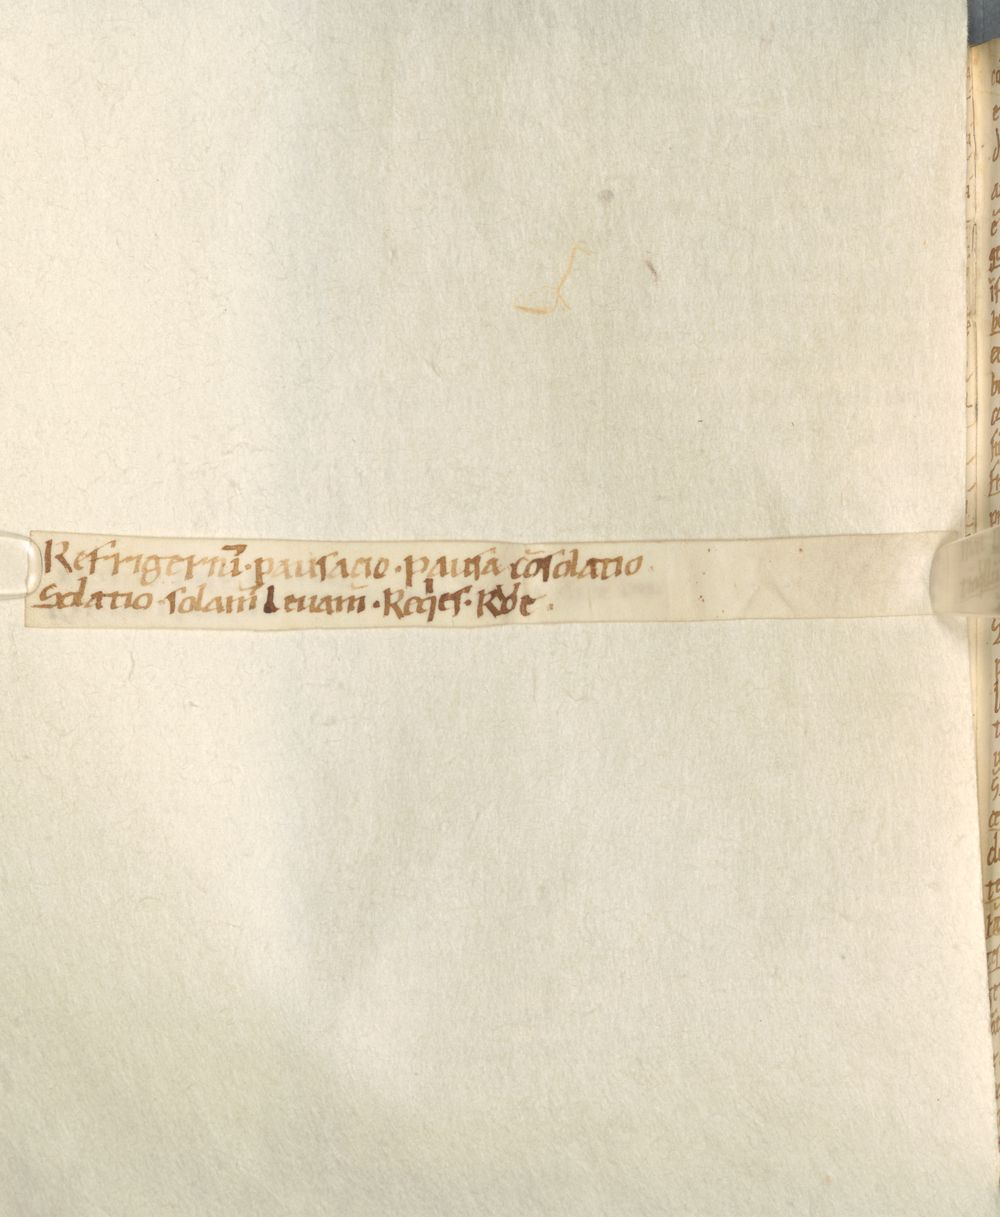 Refrigeriū · pausacio · pausa · cōsolatio ·
Solatio · solam̄ Leuam̄ · Reqies ·